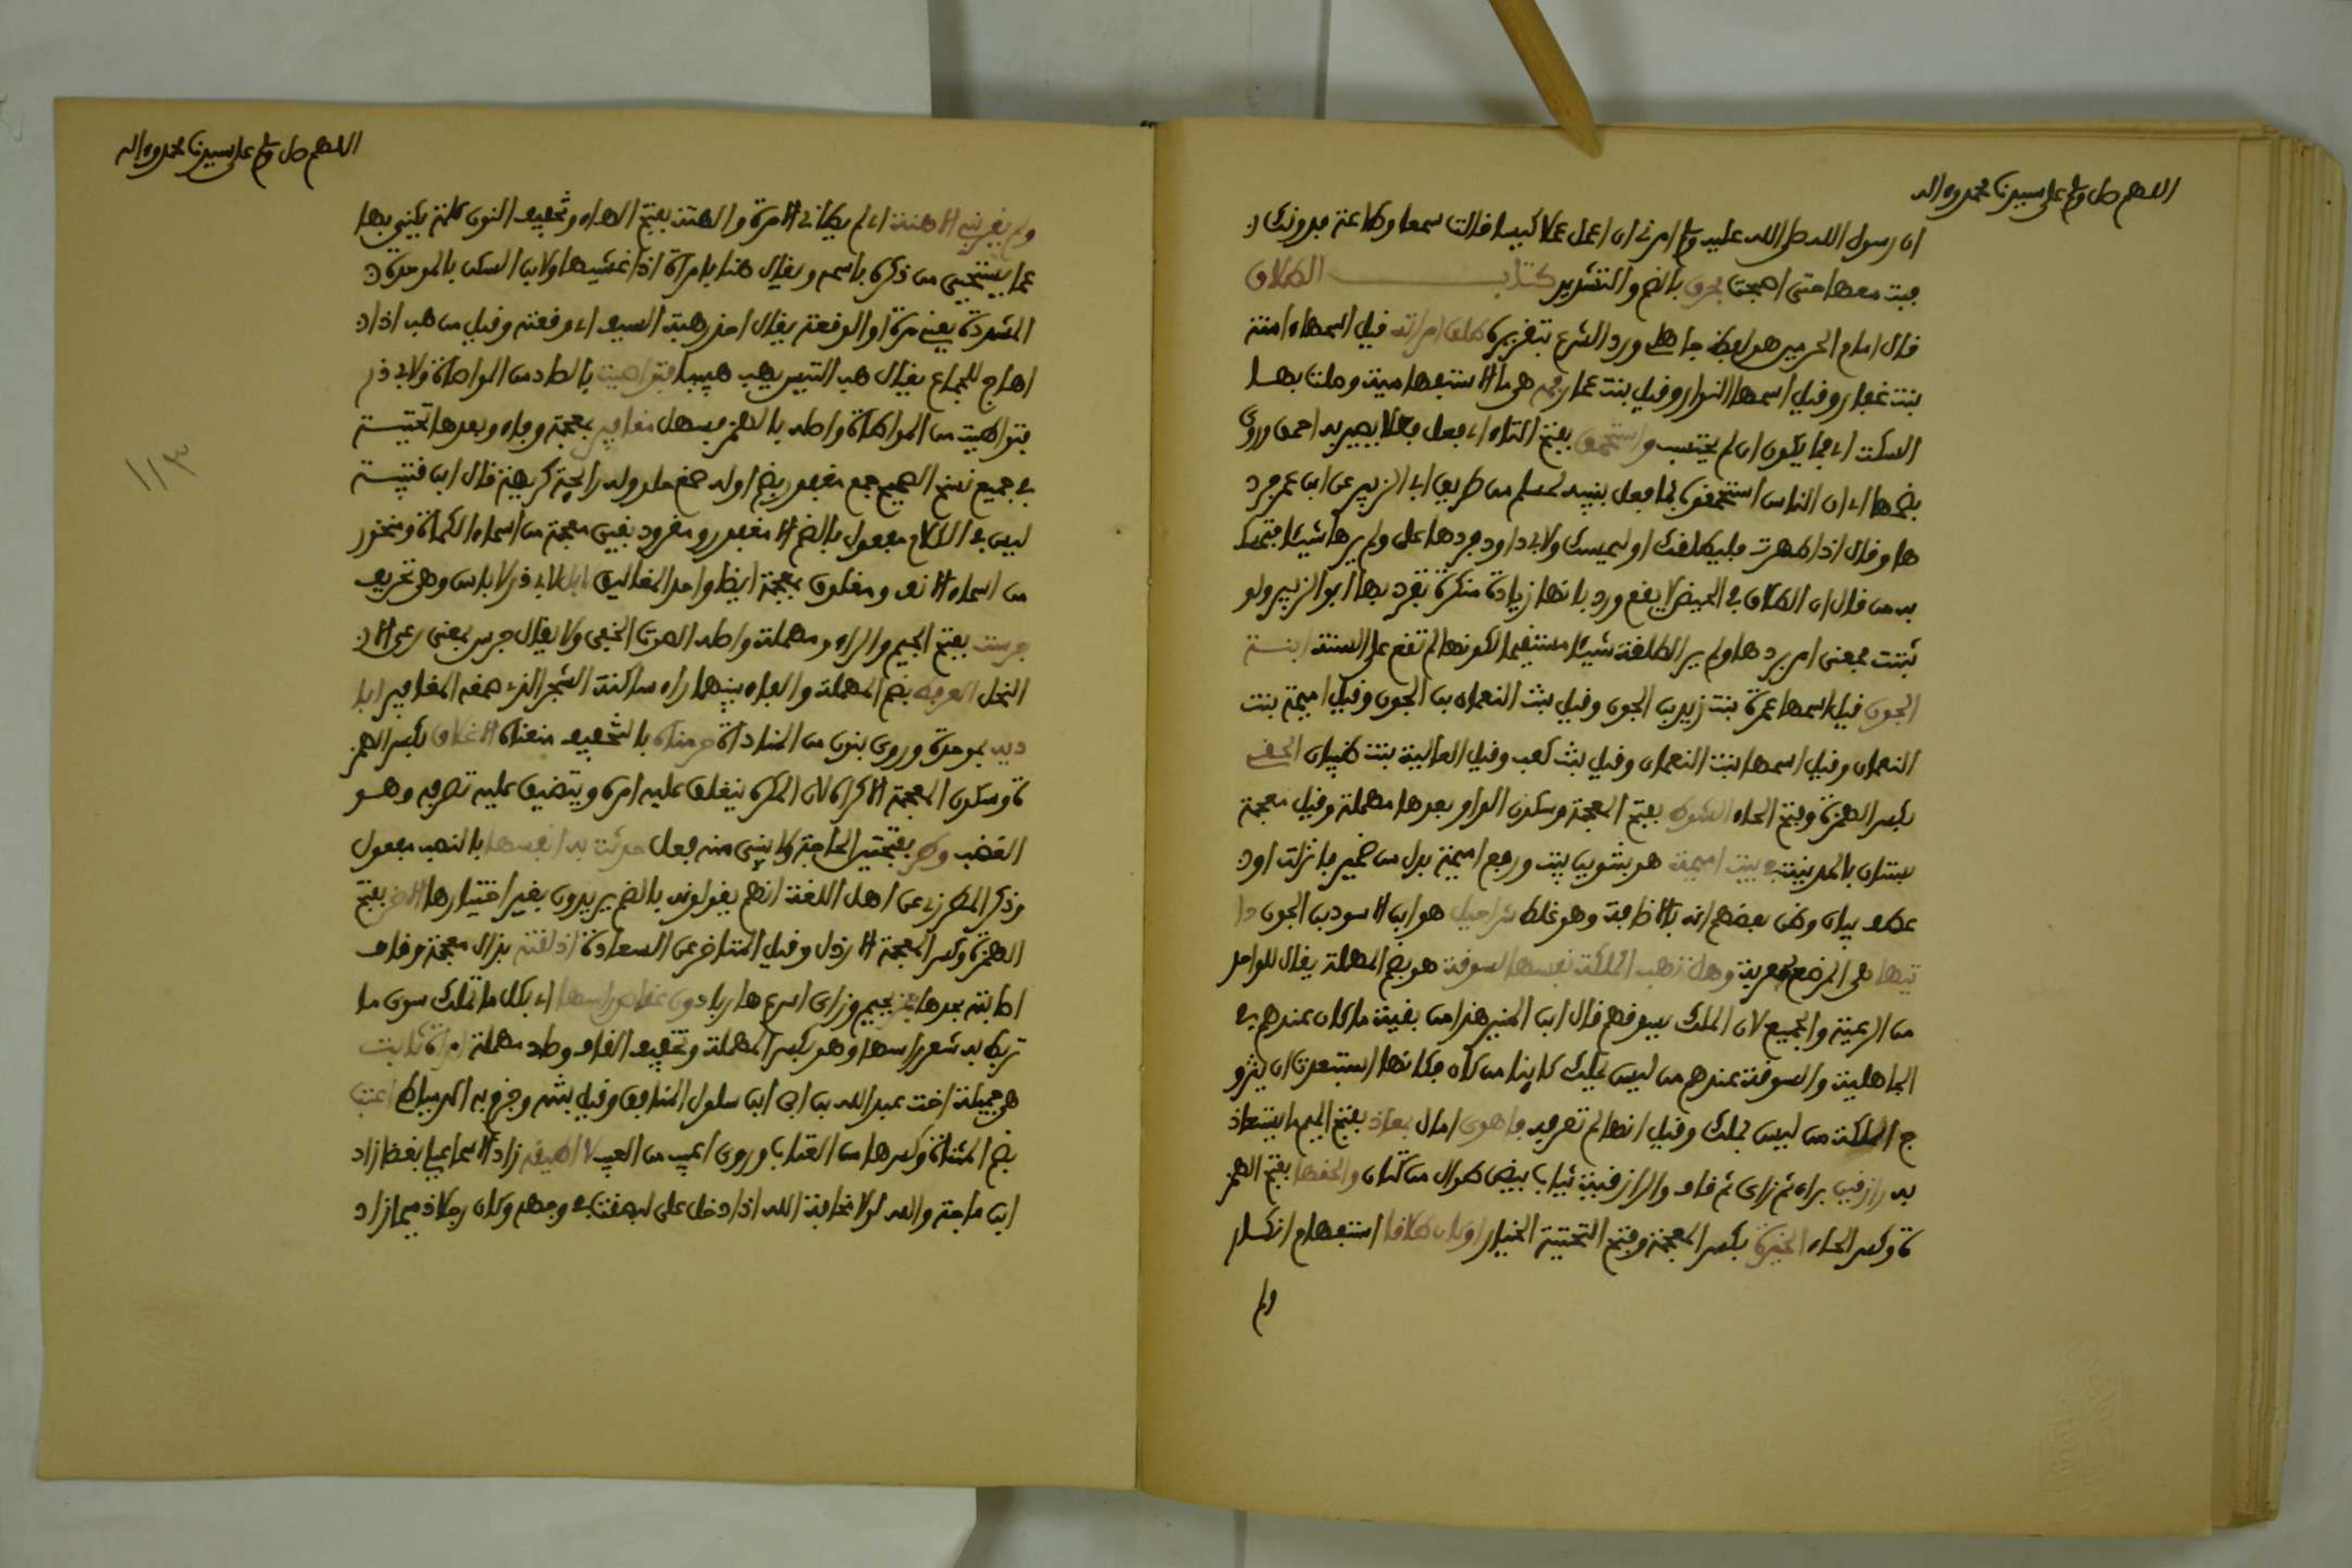 اللهم صل وسلم على سيدنا محمد وءاله
ان رسول الله صلى الله عليه وسلم امرني ان اعمل عملا كبيسا فالت سمعا وطاعة فدونك
فبت معها حتى اصبحت بحرف بالضم والتشديد كتاب الطلاق
قال امام الحرمين هو لفظ جاهلي ورد الشرع بتقريره طلق امراته قيل اسمها ءامنة
بنت غفار وقيل اسمها النوار وقيل بنت عمار فمه هي ما الاستفهامية وصلت بهاء
السكت اي فما يكون ان لم يحتسب واستحمق بفتح التاء اي فعل فعلا يصير به احمق وروي
بضمها اي ان الناس استحمقوه بما فعل لمسلم من طريق ابي الزبير عن ابن عمر فرد
ها وقال اذا طهرت فليطلق او ليمسك ولابي داود فردها علي ولم يرها شيئا فتمسك
به من قال ان الطلاق في الحيض لا يقع ورد بانها زيادة منكرة تفرد بها ابو الزبير ولو
ثبتت فمعنى امر بردها ولم ير الطلقة شيئا مستقيما لكونها لم تقع على السنة ابنة
الجون قيل اسمها عمرة بنت زيد بن الجون وقيل بنت النعمان بن الجون وقيل اميمة بنت
النعمان وقيل اسمها بنت النعمان وقيل بنت كعب وقيل العالية بنت ظبيان الحقي
بكسر الهمزة وفتح الحاء الشوط بفتح المعجمة وسكون الواو بعدها مهملة وقيل معجمة
بستان بالمدينة في بيت اميمة هو بتنوين بيت ورفع اميمة بدل من ضمير فانزلت او
عطف بيان وظن بعضهم انه بالاضافة وهو غلط شراحيل هو ابن الاسود بن الجون دا
يتها هي المرضع معربة وهل تهب الملكة نفسها للسوقة هو بضم المهملة يقال للواحد
من الرعية والجميع لان الملك يسوقهم قال ابن المنير هذا من بقية ما كان عندهم في
الجاهلية والسوقة عندهم من ليس بملك كاينا من كان فكانها استبعدت ان يتزو
ج الملكة من ليس بملك وقيل انها لم تعرفه فاهوى امال بمعاذ بفتح الميم ما يستعاذ
به رازقيين براء ثم زاي ثم قاف والرازقية ثياب بيض طوال من كتان والحقها بفتح الهمز
ة وكسر الحاء الخيرة بكسر المعجمة وفتح التحتية الخيار اوكان طلاقا استفهام انكار
ولم
اللهم صل وسلم على سيدنا محمد وءاله
ولم يقربني الا هنة اي لم يطاني الا مرة والهنة بفتح الهاء وتخفيف النون كلمة يكنى بها
عما يستحيى من ذكره باسمه ويقال هنا بامراة اذا غشيها ولابن السكن بالموحدة
المشددة يعني مرة او الوقعة يقال احذر هبة السيف اي وقعته وقيل من هب اذا
اهاج للجماع يقال هب التيس يهب هبيبا فتواصيت بالصاد من المواصاة ولابي ذر
فتواطيت من المواطاة واصله بالهمز فسهل مغافير بمعجمة وفاء وبعدها تحتية
في جميع نسخ الصحيح جمع مغفور بضم اوله صمغ حلو وله رايحة كريهة قال ابن قتيبة
ليس في الكلام مفعول بالضم الا مغفور ومغرود بغين معجمة من اسماء الكماة ومنخور
من اسماء الانف ومغلوق بمعجمة ايضا واحد المغاليق لا باس لابي ذر لا باس وهي تحريف
جرست بفتح الجيم والراء ومهملة واصله الصوت الخفي ولا يقال جرس بمعنى رعى الا
النحل العرفط بضم المهملة والفاء بينهما راء ساكنة الشجر الذي صمغه المغافير ابا
ديه بموحدة وروي بنون من المناداة حرمناه بالتخفيف منعناه الاغلاق بكسر الهمز
ة وسكون المعجمة الاكراه لان المكره ينغلق عليه امره ويتضيق عليه تصرفه وهو
الغضب وطر بفتحتين الحاجة ولا يبنى منه فعل حدثت به انفسها بالنصب مفعول
وذكر المطرزي عن اهل اللغة انهم يقولونه بالضم يريدون بغير اختيارها الاخر بفتح
الهمزة وكسر المعجمة الارذل وقيل المتاخر عن السعادة اذلقته بذال معجمة وقاف
اصابته بحدها جمز بجيم وزاي اسرع هاربا دون عقاص راسها اي بكل ما تملك سوى ما
تربط به شعر راسها وهو بكسر المهملة وتخفيف القاف وصاد مهملة امراة ثابت
هي جميلة اخت عبد الله بن ابي ابن سلول المنافق وقيل بنته وجزم به الدمياطي اعتب
بضم المثناة وكسرها من العتاب وروي اعيب من العيب لا اطيقه زاد الاسماعيلي بغضا زاد
ابن ماجه والله لولا مخافة الله اذا دخل علي لبصقت في وجهه وكان رجلا ذميما زاد
١١٣